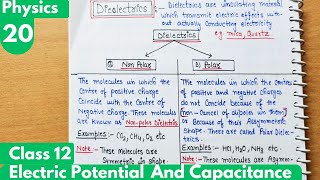 Physics
20
Dielectrics :- Dielectrics are insulating material
which transmit electric effects with-
actually Conducting electricity
eg. mica, Quartz
Dielectrics
① Non Polar
The molecules in which the
Centre of positive charge
Coincide with the Centre of
Negative charge. These molecules
are known as Non-polar Dieletrics
Examples:- CO2, CH4, O2 etc
Note :- These Molecules are
Symmetric in shape.
② Polar
The molecules in which the centres
of positive and negative charges
do not Coincide because of the
non-Cancel of dipoles in them
or because of their Assymmetric
Shape. There are called Polar Diele-
ctrics.
Examples :- HCl, H2O, NH3 etc.
Note :- These molecules are Assymme-
Class 12
Electric Potential And Capacitance